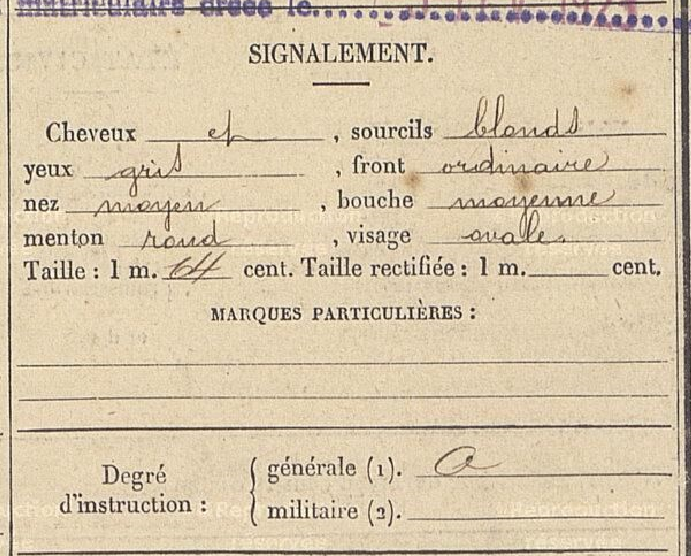 matriculaire créée le
SIGNALEMENT.
Cheveux et , sourcils blonds
yeux gris , front ordinaire
nez moyen , bouche moyenne
menton rond , visage ovale
Taille : 1 m. 64 cent. Taille rectifiée : 1 m. cent.
MARQUES PARTICULIÈRES :
Degré d'instruction :
générale (1). 0
militaire (2).